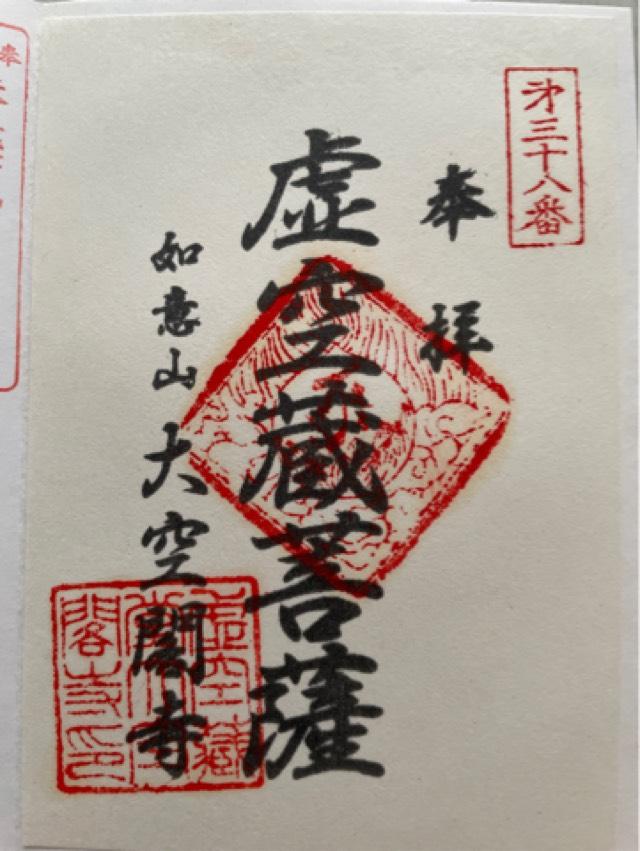 第三十八番
奉拝
虚空蔵菩薩
如意山大空閣寺